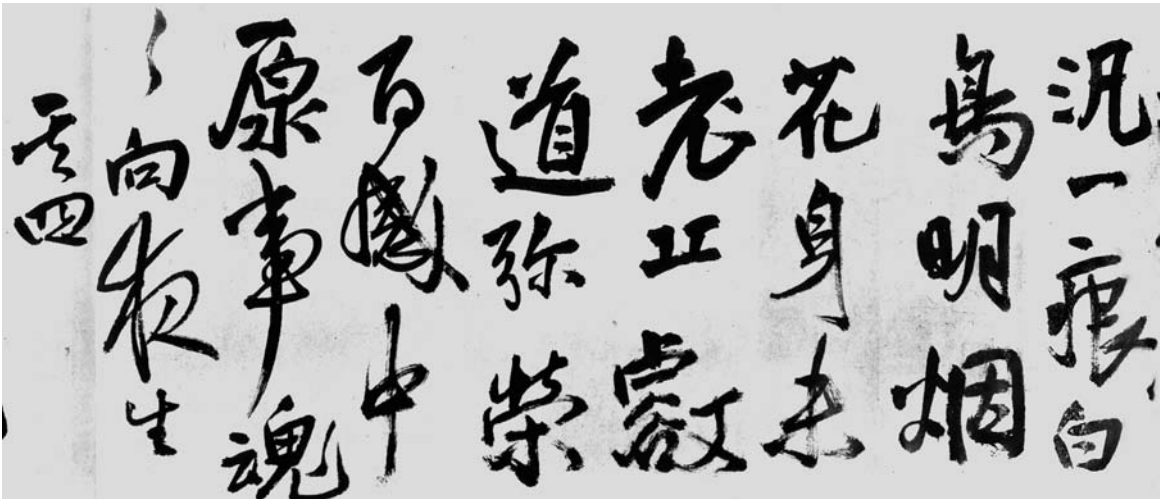 汎一痕白
鳥明烟
花身未
老丘壑
道弥榮
百感中
原事魂
々向夜生
其四